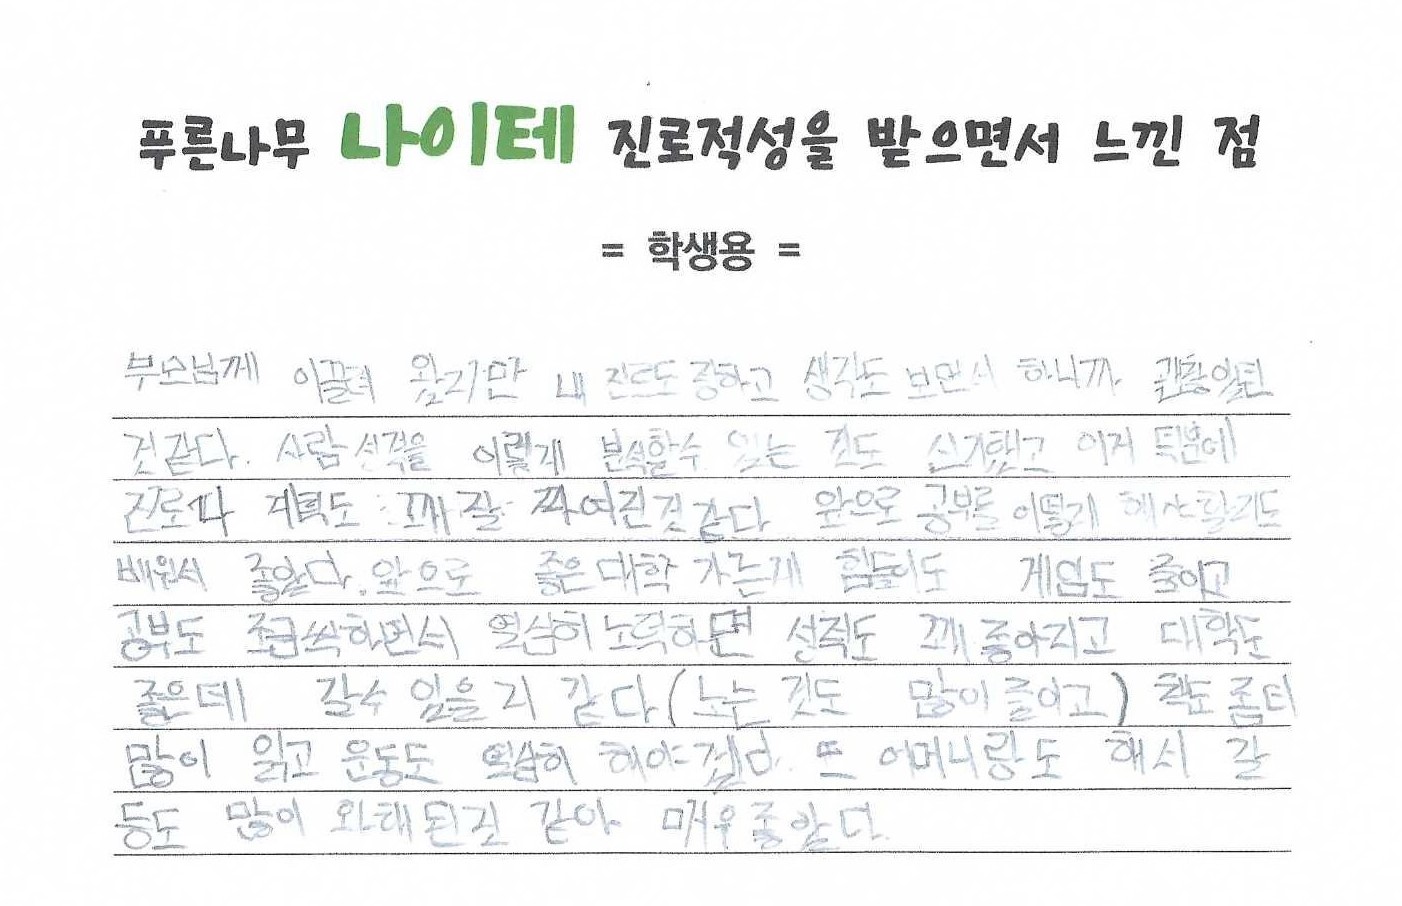 푸른나무 나이테 진로적성을 받으면서 느낀 점
= 학생용 =
부모님께 이끌려 왔지만 내 진로도 정하고 생각도 보면서 하니까 괜찮았던
것 같다. 사람 성격을 이렇게 분석할수 있는 것도 신기했고 이거 덕분에
진로다 계획도 꽤 잘 짜여진것 같다 앞으로 공부를 어떻게 해야 할지도
배워서 좋았다. 앞으로 좋은 대학 가는게 힘들어도 게임도 줄이고
공부도 조금씩하면서 열심히 노력하면 성적도 꽤 좋아지고 대학도
좋은데 갈수 있을 거 같다 (노는 것도 많이 줄이고) 책도 좀더
많이 읽고 운동도 열심히 해야 겠다. 또 어머니랑도 해서 갈
등도 많이 완해 된것 같아 매우 좋았다.